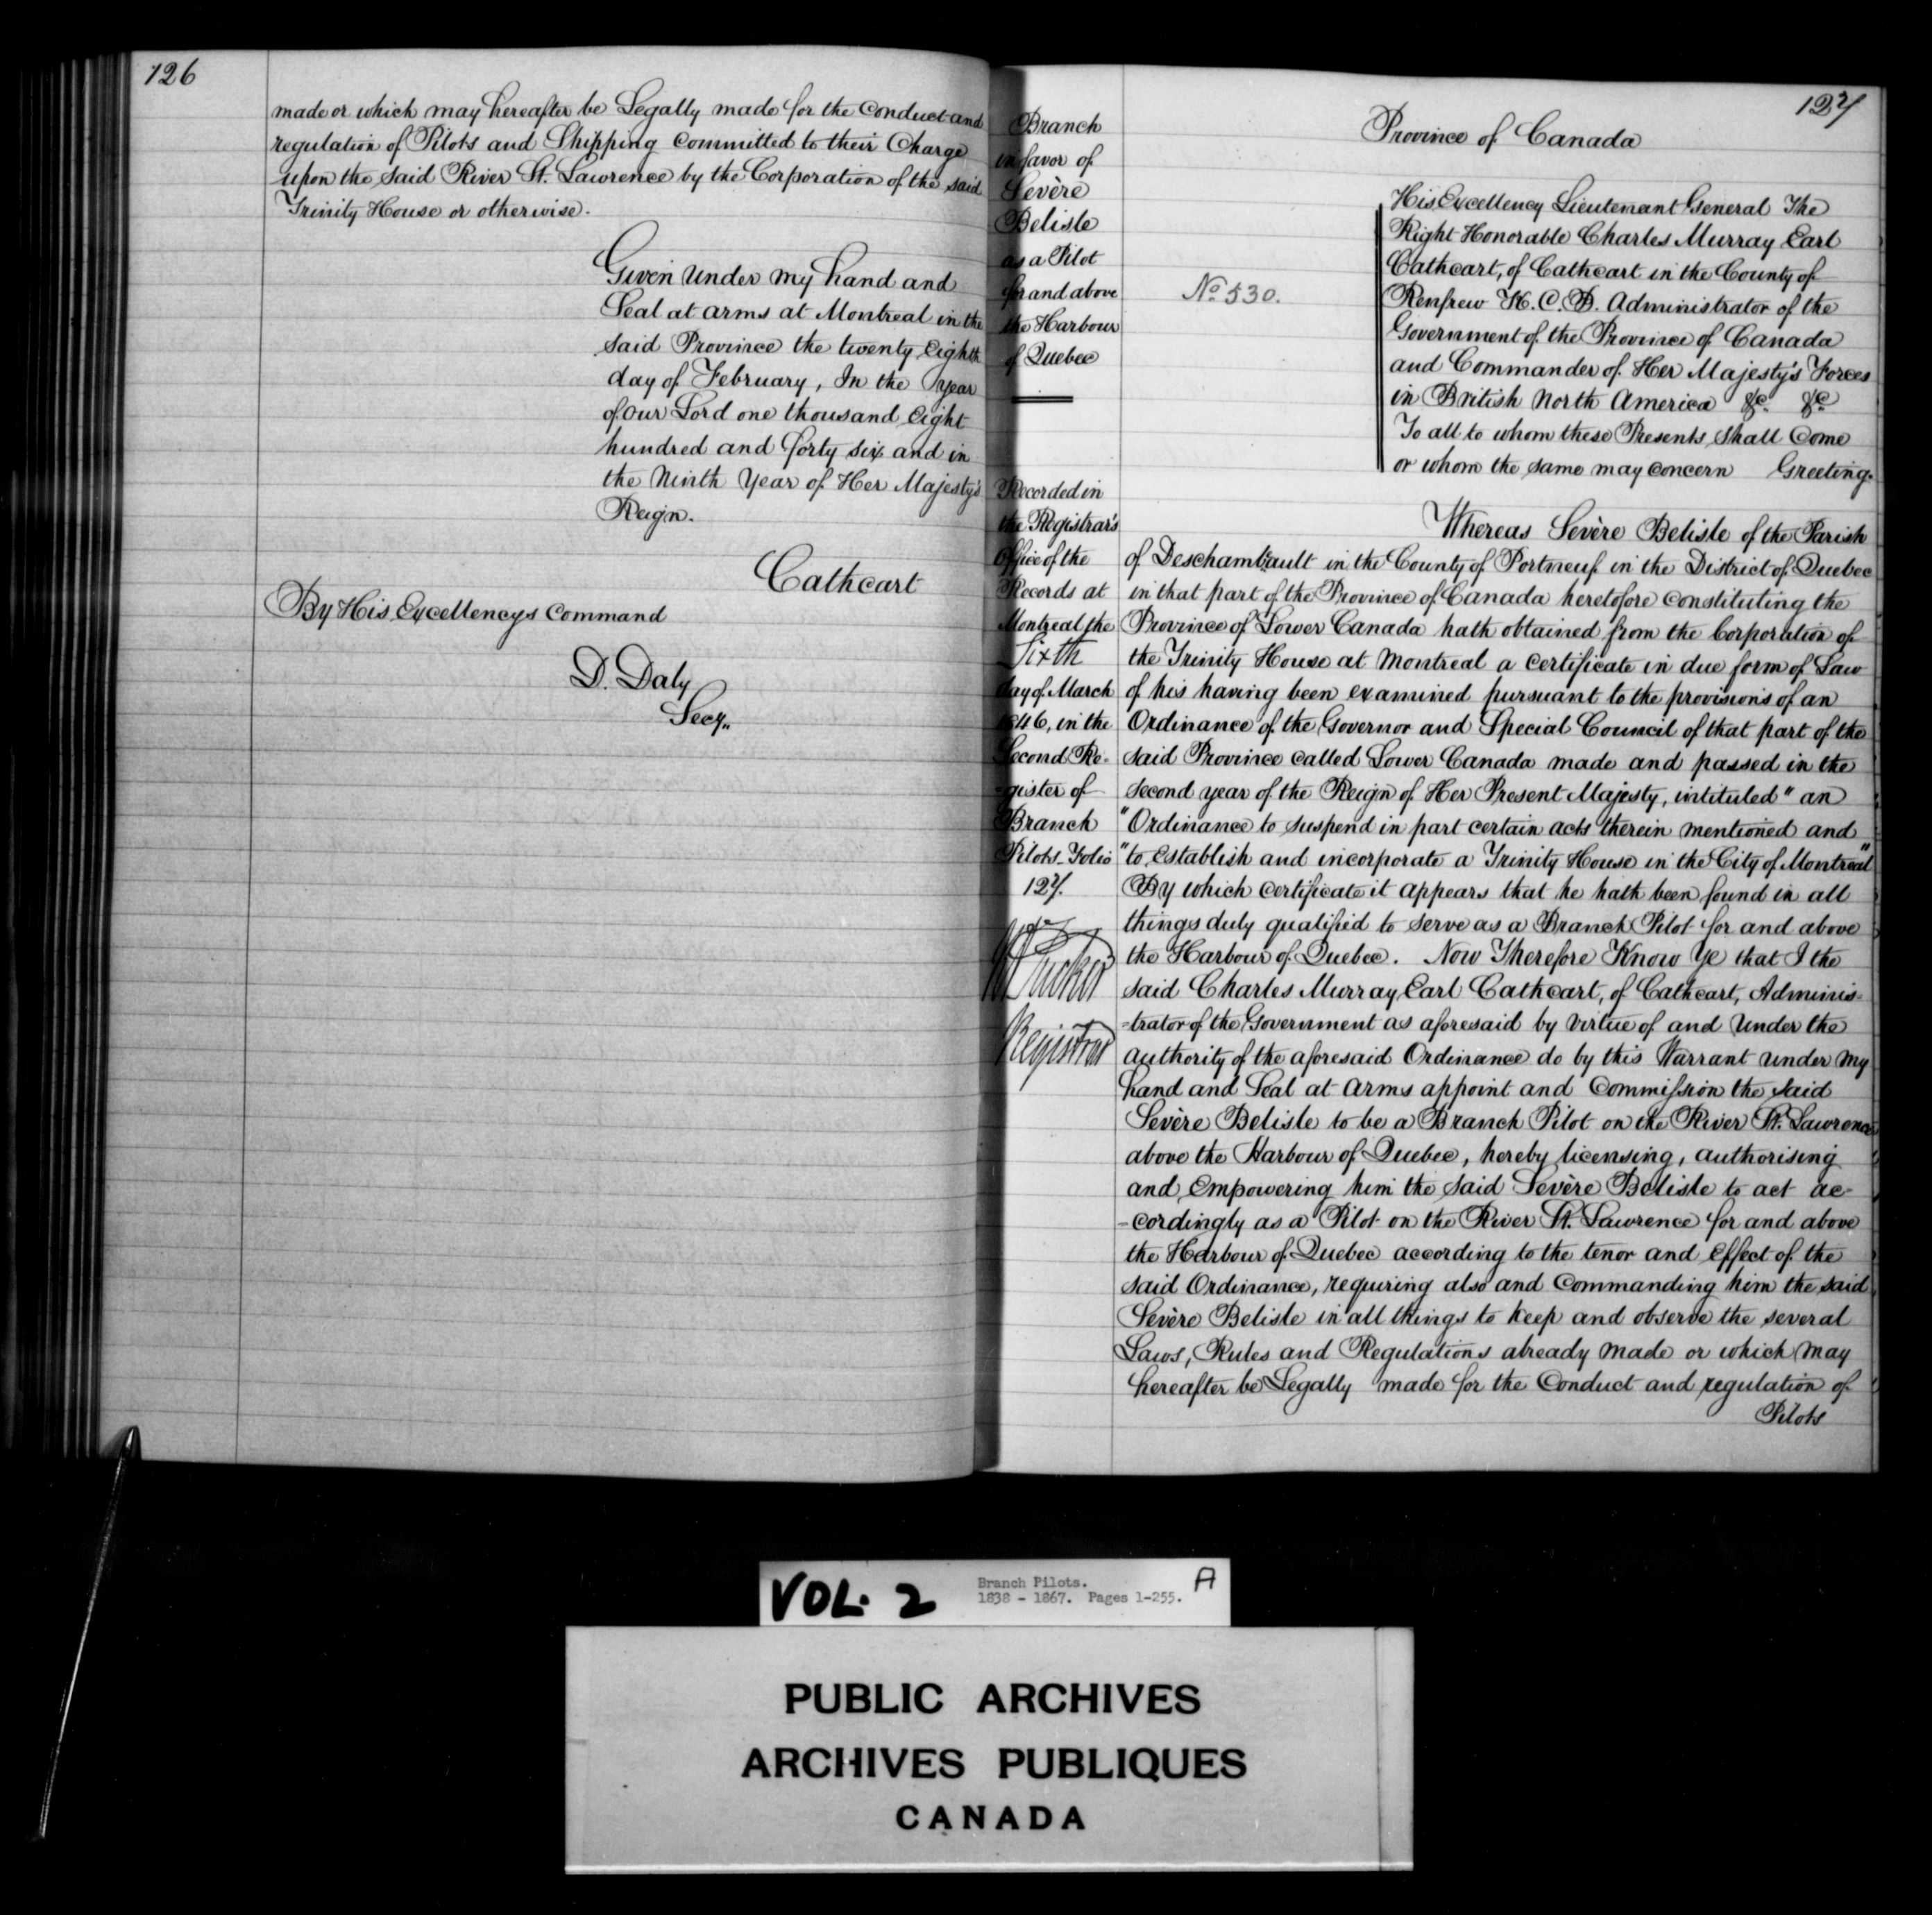 126
made or which may hereafter be Legally made for the Conduct and
regulation of Pilots and Shipping Committed to their Charge
upon the said River St. Lawrence by the Corporation of the said
Trinity House or otherwise.
Given under my hand and
Seal at arms at Montreal in the
said Province the twenty Eighth
day of February, In the Year
of Our Lord one thousand Eight
hundred and forty six and in
the Ninth Year of Her Majesty's
Reign.
Cathcart
By His Excellencys Command
D. Daly
Secy.
127
Branch
in favor of
Sevère
Belisle
as a Pilot
for and above
the Harbour
of Quebec
Recorded in
the Registrar's
Office of the
Records at
Montreal the
Sixth
day of March
1846, in the
Second Re-
-gister of
Branch
Pilots Folio
127.
Tucker
Registrar
Province of Canada
No 530.
His Excellency Lieutenant General The
Right Honorable Charles Murray Earl
Cathcart, of Cathcart in the County of
Renfrew K.C.B. Administrator of the
Government of the Province of Canada
and Commander of Her Majesty's Forces
in British North America &c. &c.
To all to whom these Presents shall Come
or whom the same may concern Greeting.
Whereas Sevère Belisle of the Parish
of Deschambault in the County of Portneuf in the District of Quebec
in that part of the Province of Canada heretofore constituting the
Province of Lower Canada hath obtained from the Corporation of
the Trinity House at Montreal a Certificate in due form of Law
of his having been examined pursuant to the provisions of an
Ordinance of the Governor and Special Council of that part of the
said Province called Lower Canada made and passed in the
second year of the Reign of Her Present Majesty, intituled "an
"Ordinance to suspend in part certain acts therein mentioned and
"to Establish and incorporate a Trinity House in the City of Montreal"
By which certificate it appears that he hath been found in all
things duly qualified to serve as a Branch Pilot for and above
the Harbour of Quebec. Now Therefore Know Ye that I the
said Charles Murray Earl Cathcart, of Cathcart, Adminis-
-trator of the Government as aforesaid by virtue of and Under the
authority of the aforesaid Ordinance do by this Warrant under my
hand and Seal at arms appoint and Commission the said
Sevère Belisle to be a Branch Pilot on the River St. Lawrence
above the Harbour of Quebec, hereby licensing, authorising
and Empowering him the said Sevère Belisle to act ac-
-cordingly as a Pilot on the River St. Lawrence for and above
the Harbour of Quebec according to the tenor and Effect of the
said Ordinance, requiring also and Commanding him the said
Sevère Belisle in all things to keep and observe the several
Laws, Rules and Regulations already made or which may
hereafter be Legally made for the Conduct and regulation of
Pilots
VOL. 2
Branch Pilots.
1838 - 1867. Pages 1-255.
A
PUBLIC ARCHIVES
ARCHIVES PUBLIQUES
CANADA